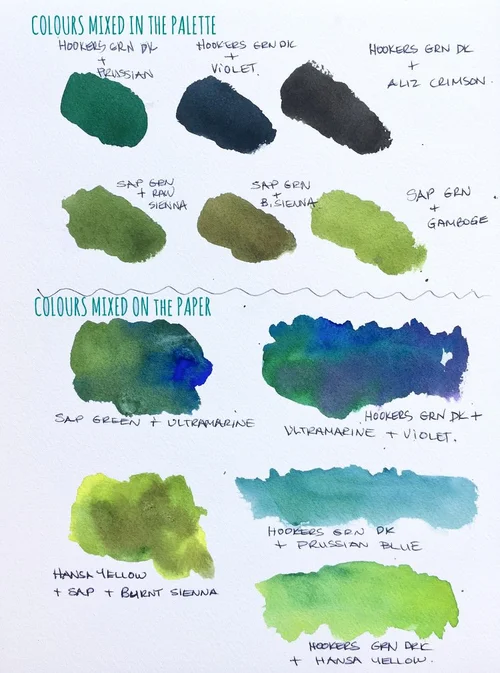 COLOURS MIXED IN THE PALETTE
HOOKERS GRN DK
+
PRUSSIAN
HOOKERS GRN DK
+
VIOLET.
HOOKERS GRN DK
+
ALIZ CRIMSON.
SAP GRN
+ RAW
SIENNA
SAP GRN
+
B. SIENNA
SAP GRN
+
GAMBOGE
COLOURS MIXED ON THE PAPER
SAP GREEN + ULTRAMARINE
HOOKERS GRN DK +
ULTRAMARINE + VIOLET.
HANSA YELLOW
+ SAP + BURNT SIENNA
HOOKERS GRN DK
+ PRUSSIAN BLUE
HOOKERS GRN DRK
+ HANSA YELLOW.